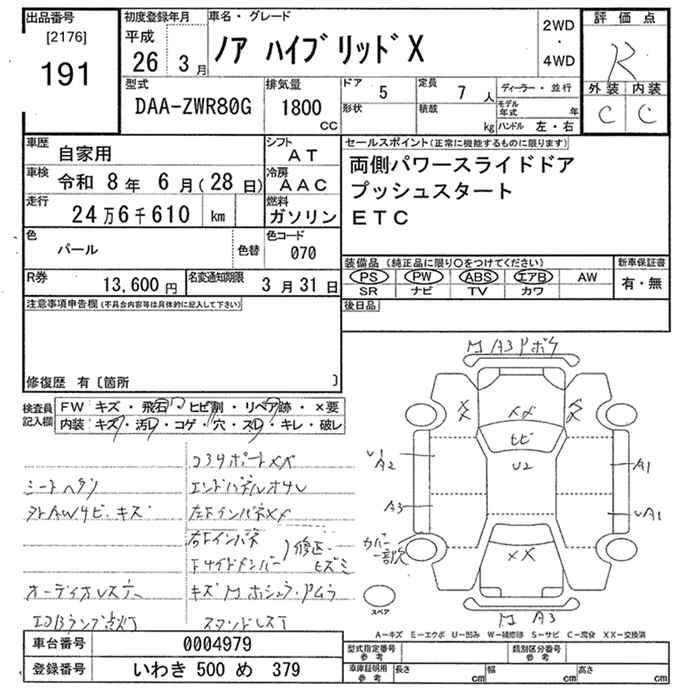 出品番号
[2176]
191
初度登録年月
平成
26 3月
車名・グレード
ノア ハイブリッド X
2WD
・
4WD
評価点
R
外装 内装
C C
型式
DAA-ZWR80G
排気量
1800
CC
ドア
5
形状
定員
7 人
積載
kg
ディーラー・並行
モデル年式 年
ハンドル 左・右
車歴
自家用
シフト
AT
車検
令和 8年 6月(28日)
冷房
AAC
走行
24万6千610 km
燃料
ガソリン
色
パール
色替
色コード
070
R券
13,600円
名変通知期限
3月31日
セールスポイント(正常に機能するものに限ります)
両側パワースライドドア
プッシュスタート
ETC
装備品(純正品に限り○をつけてください)
PS PW ABS エアB AW
SR ナビ TV カワ
新車保証書
有・無
後日品
注意事項申告欄(不具合内容等は具体的に記入して下さい)
修復歴 有〔箇所 〕
検査員
記入欄
FW キズ・飛石・ヒビ割・リペア跡・×要
内装 キズ・汚レ・コゲ・穴・スレ・キレ・破レ
コアサポートXX
シートヘタリ
エンドパネルオサレ
外AWサビ・キズ
左FインパネXX
右Fインパネ
Fサイドメンバー
修正・ヒズミ
オーディオレス
エアBランプ点灯
A3
XX
XX
XX
ヒビ
U2
A2
A3
A1
UA1
カバー
一部欠
XX
A3
スペア
A-キズ E-エクボ U-凹み W-補修跡 S-サビ C-腐食 XX-交換済
車台番号
0004979
登録番号
いわき 500 め 379
型式指定番号
参考
類別区分番号
参考
車庫証明用
参考
長さ cm
幅 cm
高さ cm